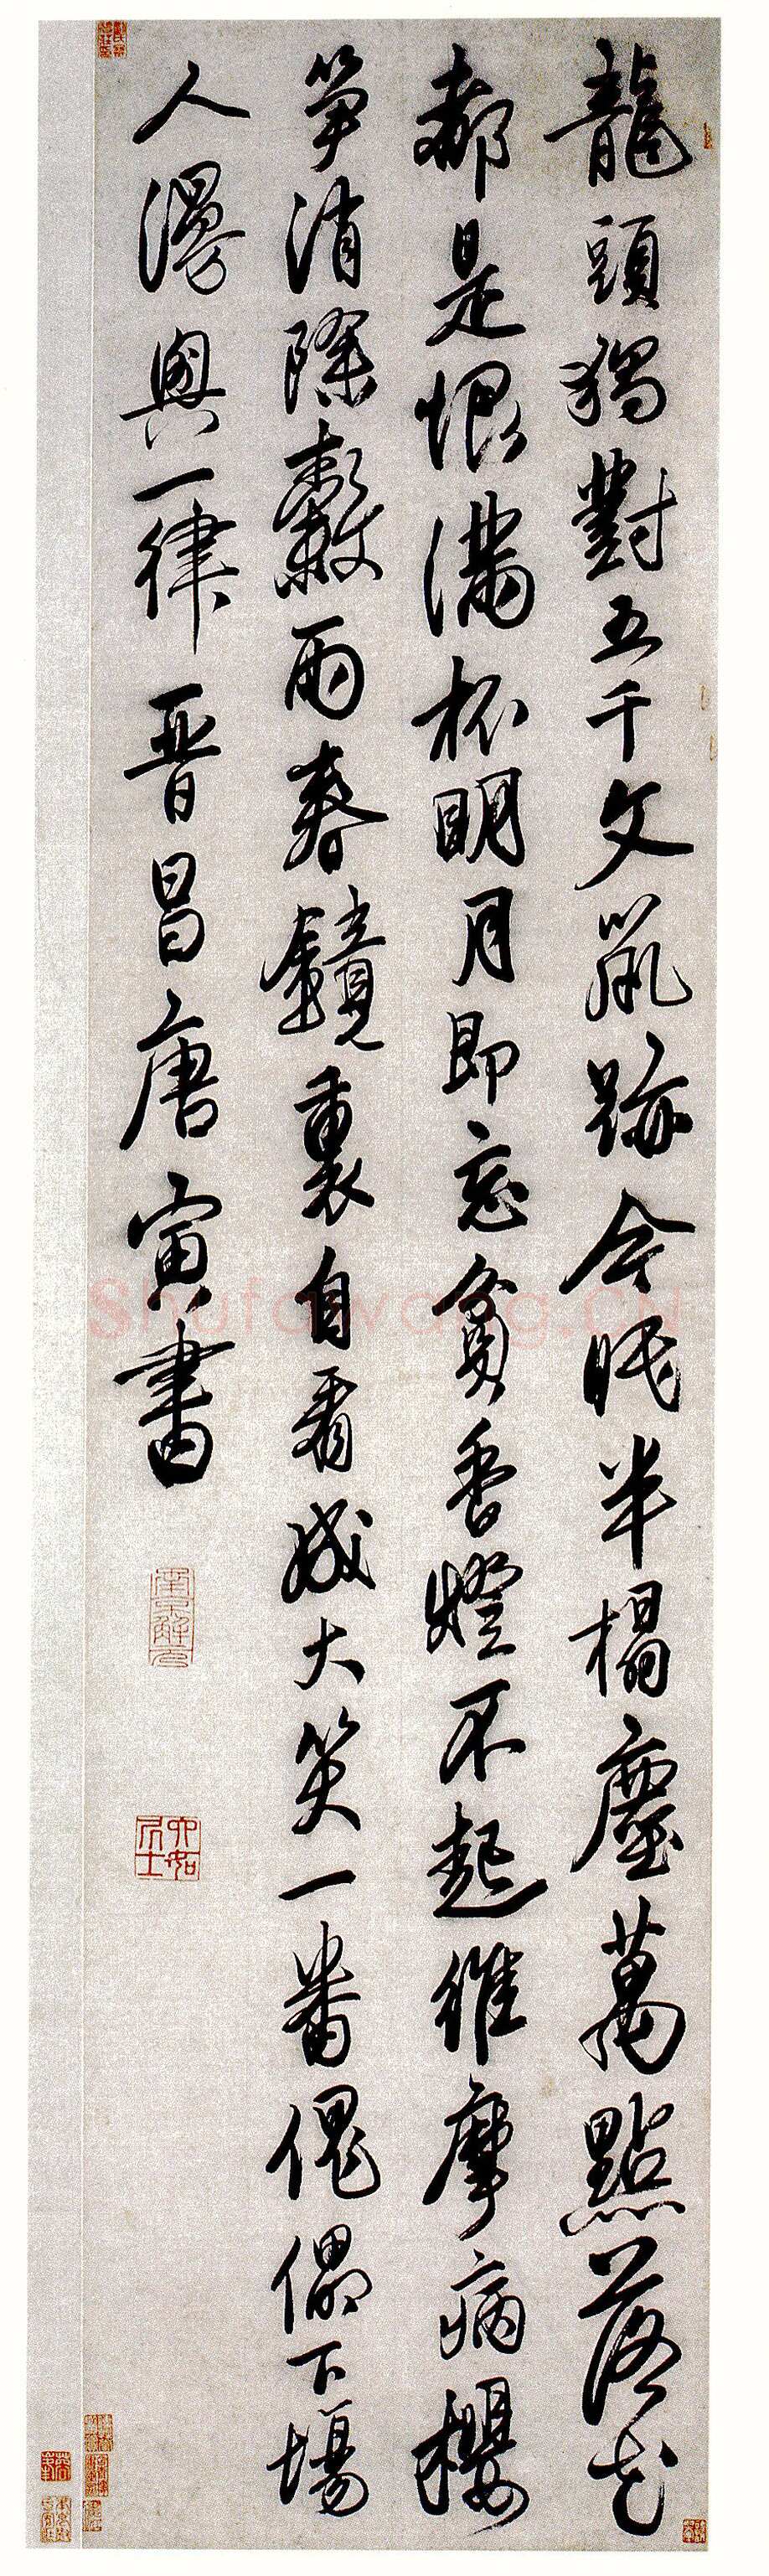 龍頭獨對五千文鼠跡今眠半榻塵萬點落花
都是恨滿杯明月即忘貧香燈不起維摩病櫻
笋消除穀雨春鏡裏自看成大笑一番傀儡下場
人漫興一律晉昌唐寅書
南京解元
六如居士
Shufawang.CN